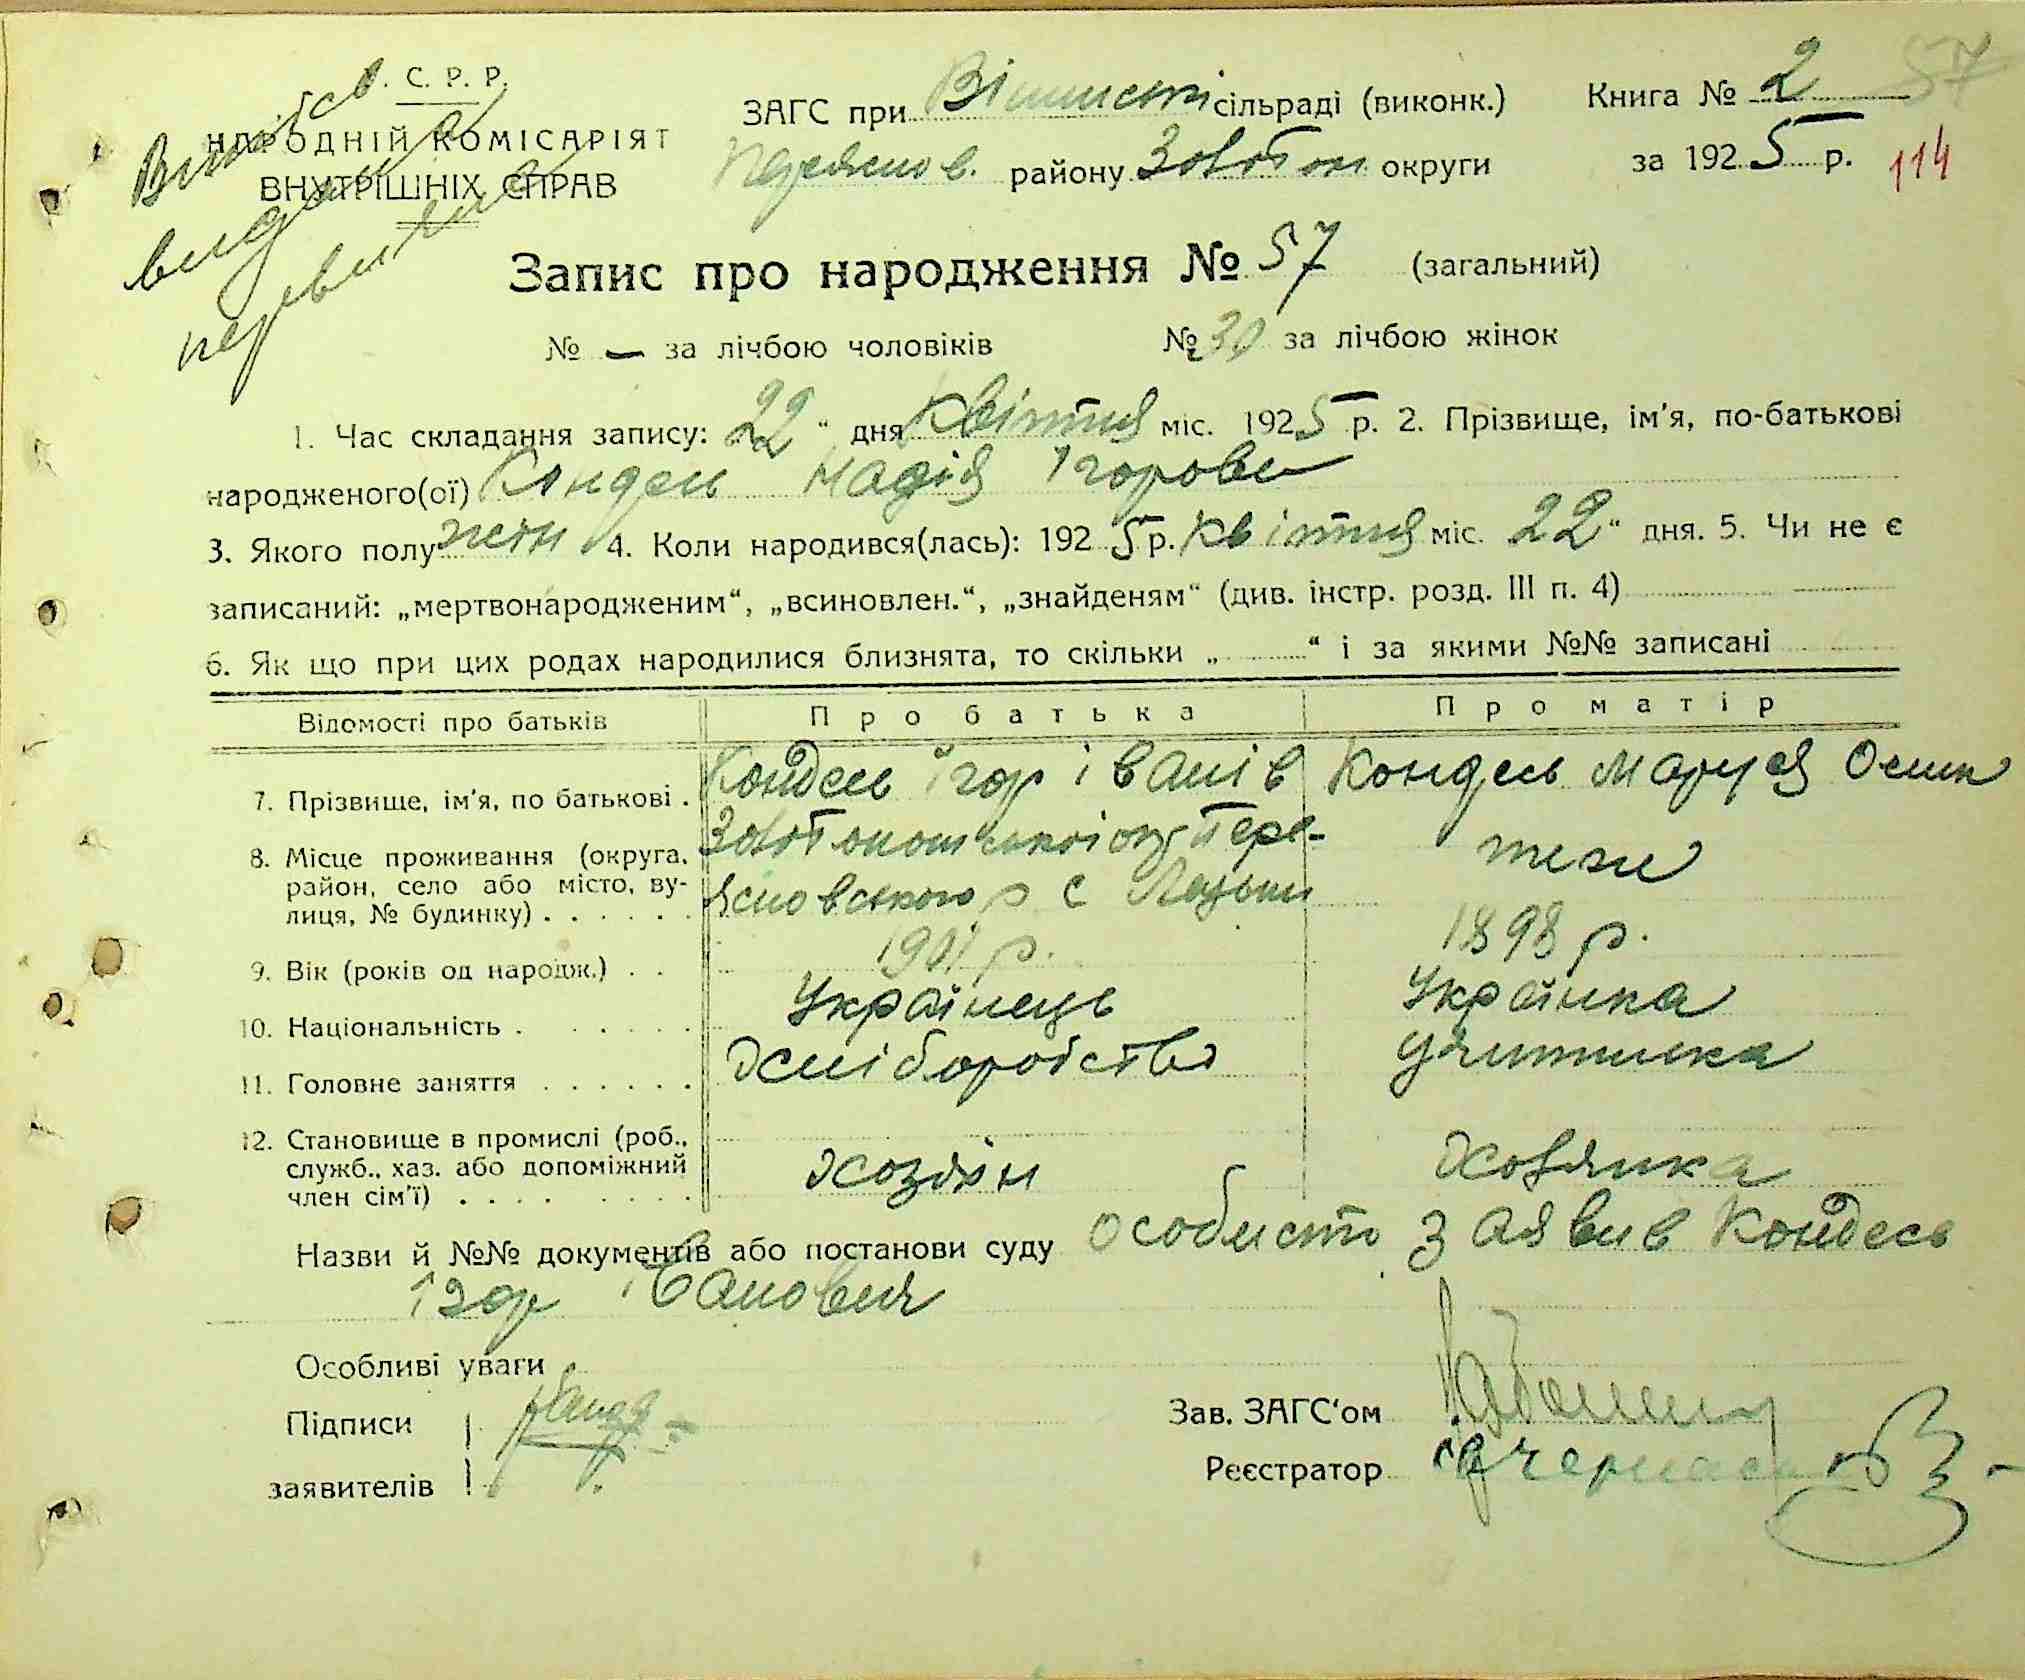 С. Р. Р.
НАРОДНІЙ КОМІСАРІЯТ
ВНУТРІШНІХ СПРАВ
ЗАГС при сільраді (виконк.)
Книга № 2
57
району Золотон округи
за 1925 р.
114
Запис про народження № 57 (загальний)
№ — за лічбою чоловіків № 30 за лічбою жінок
1. Час складання запису: 22 “ дня Квітня міс. 1925 р. 2. Прізвище, ім'я, по-батькові
народженого(ої) Кондесь Надія Ігорови
3. Якого полу жін 4. Коли народився(лась): 1925 р. Квітня міс. 22 “ дня. 5. Чи не є
записаний: „мертвонародженим“, „всиновлен.“, „знайденям“ (див. інстр. розд. III п. 4)
6. Як що при цих родах народилися близнята, то скільки „ “ і за якими №№ записані
Відомості про батьків Про батька Про матір
7. Прізвище, ім'я, по батькові . Кондесь Ігор Іванів Кондесь Маруся Осип
8. Місце проживання (округа, район, село або місто, вулиця, № будинку) . . . . . . Золотоношської ок Переяславського р с теж
9. Вік (років од народж.) . . 1901 р. 1898 р.
10. Національність . . . . . . . Українець Українка
11. Головне заняття . . . . . . Хліборобство Учителька
12. Становище в промислі (роб., служб., хаз. або допоміжний член сім'ї) . . . . . . . . Хозяін Хозяйка
Назви й №№ документів або постанови суду особисто заявив Кондесь
Ігор Іванович
Особливі уваги
Підписи
заявителів
Зав. ЗАГС'ом
Реєстратор